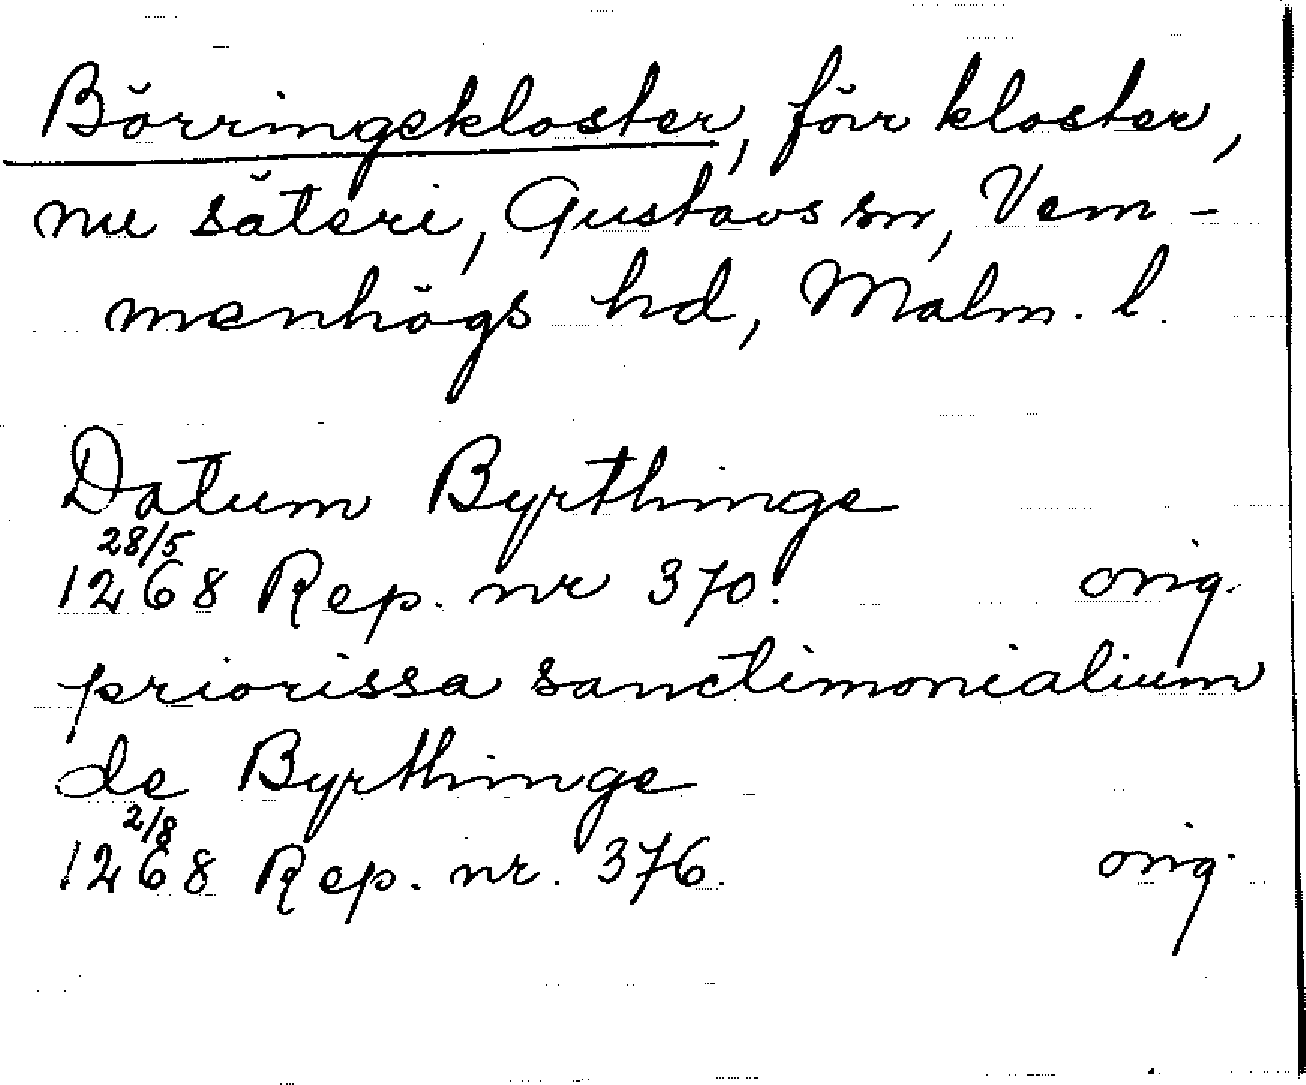 Börringekloster, förr kloster,
nu säteri, Gustavs sn, Vem-
menhögs hd, Malm. l.
Datum Byrthinge
28/5
1268 Rep. nr 370. orig.
priorissa sanctimonialium
de Byrthinge
2/8
1268 Rep. nr. 376. orig.